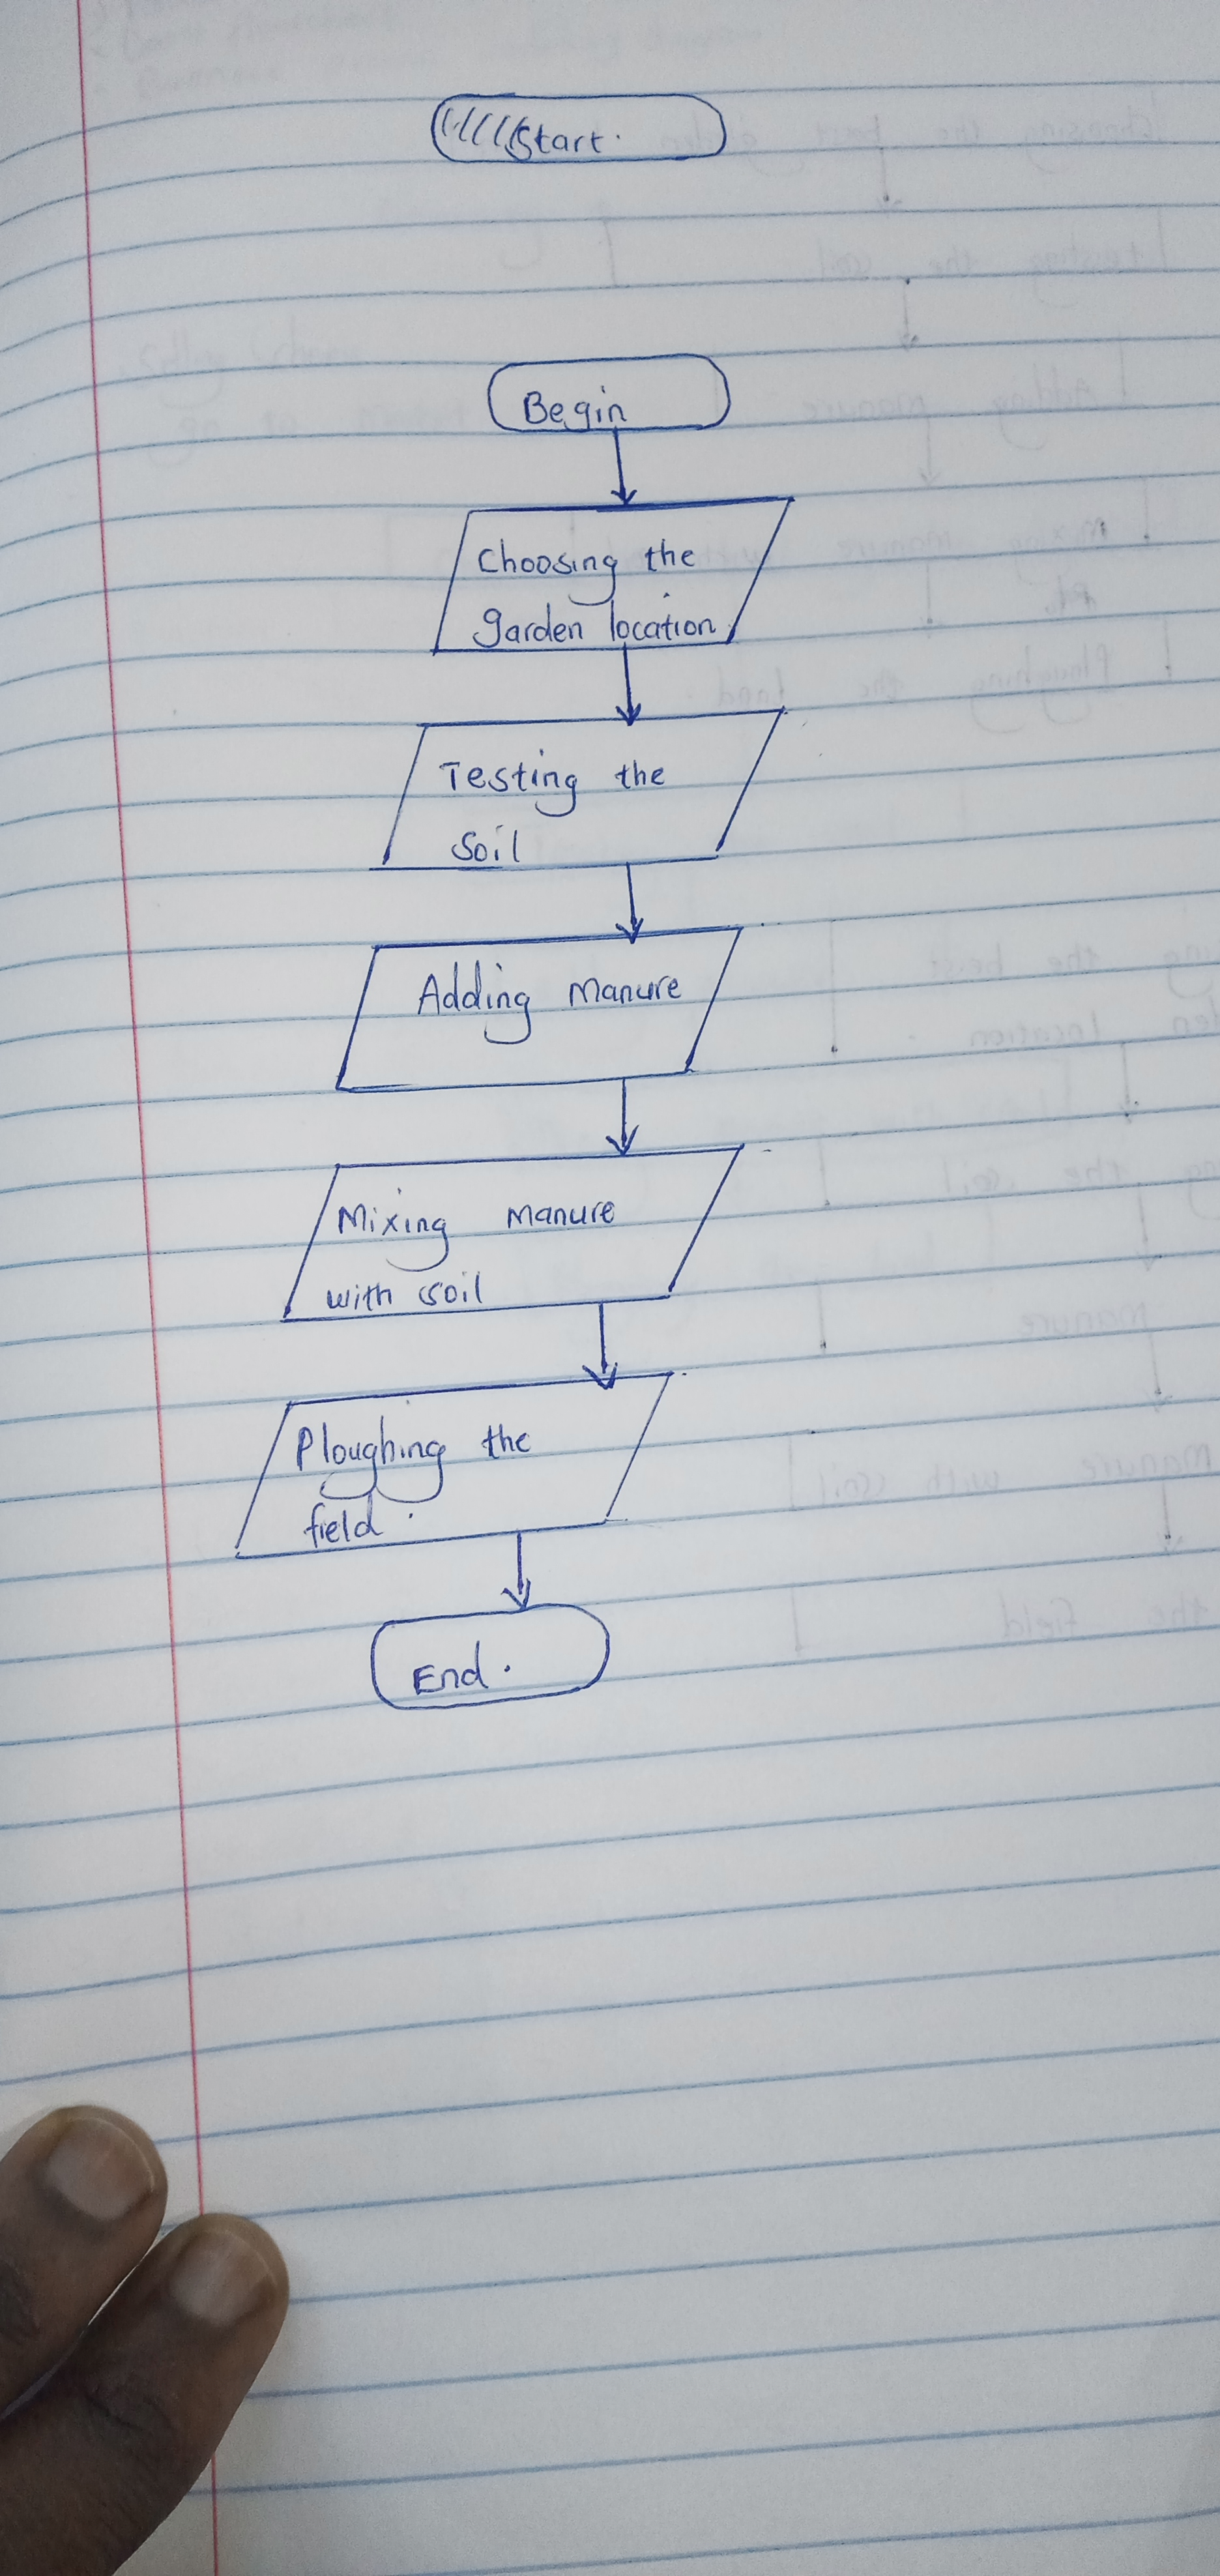 Start.
Begin
Choosing the
garden location.
Testing the
Soil
Adding Manure
Mixing Manure
with soil
Ploughing the
field.
End.